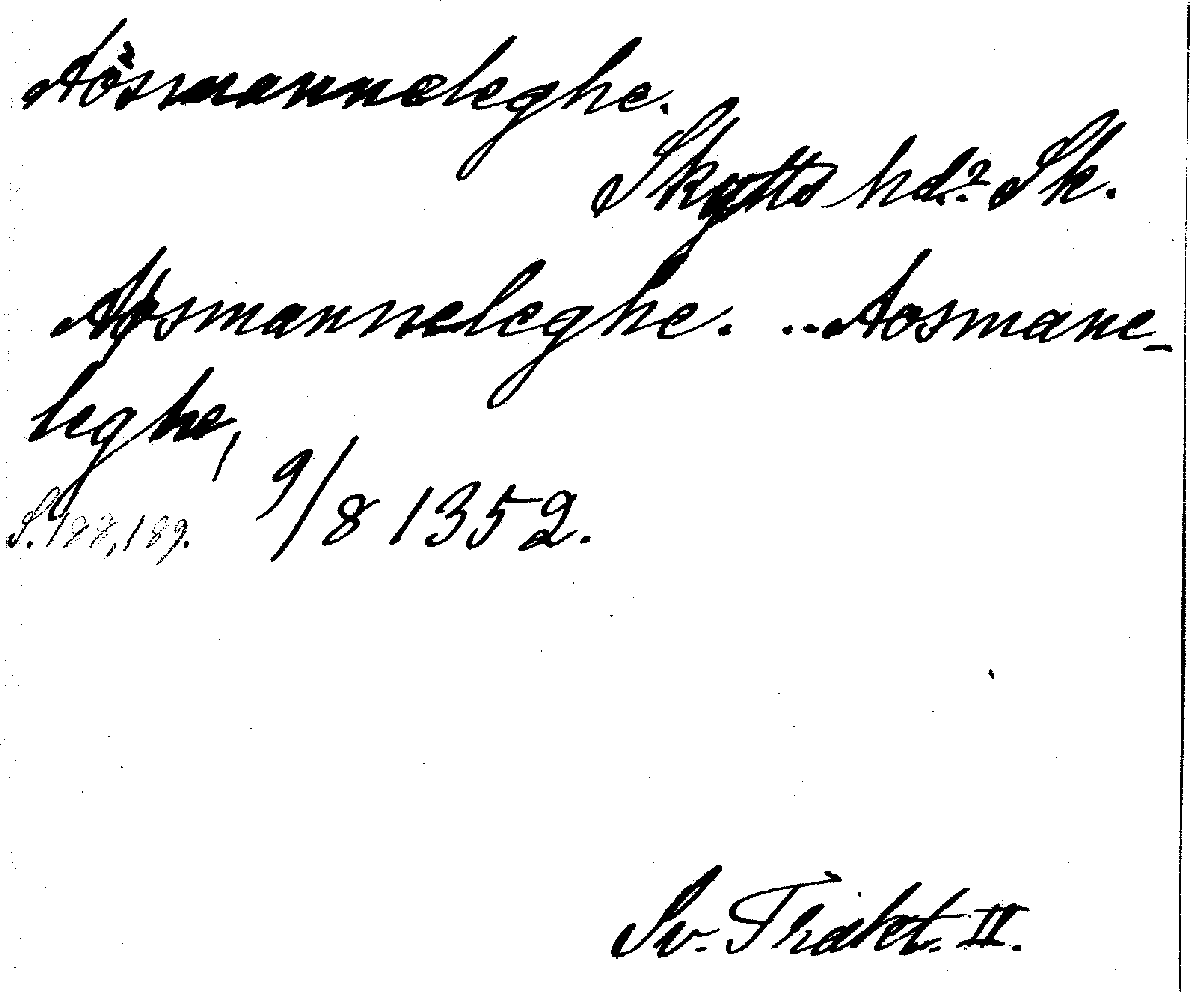 Aosmanneleghe.
Skytts hd? Sk.
Aosmanneleghe. .. Aosmane-
leghe,
S. 188, 189. 9/8 1352.
Sv. Trakt. II.